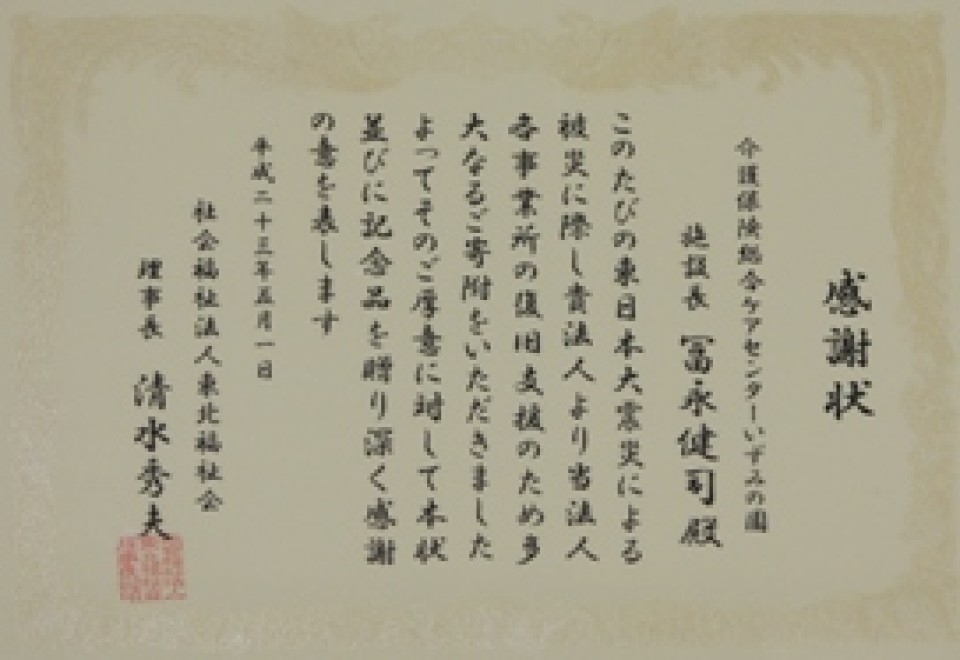 感謝状
介護保険総合ケアセンターいずみの園
施設長 冨永健司殿
このたびの東日本大震災による
被災に際し貴法人より当法人
各事業所の復旧支援のため多
大なるご寄附をいただきました
よってそのご厚意に対して本状
並びに記念品を贈り深く感謝
の意を表します
平成二十三年五月一日
社会福祉法人東北福祉会
理事長 清水秀夫